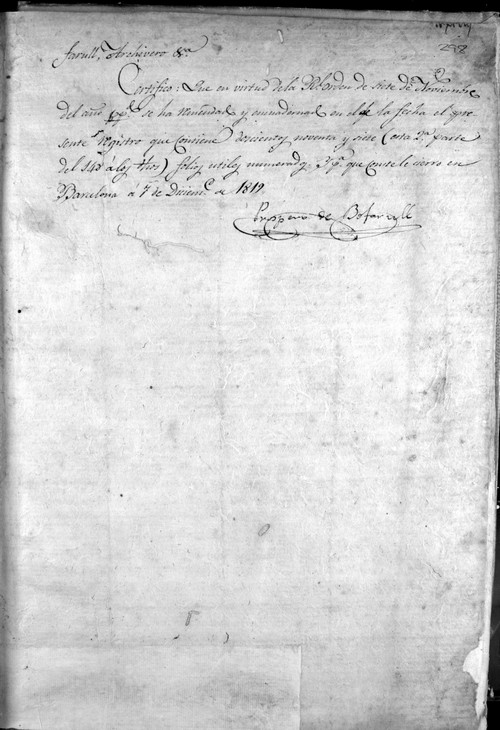 298
farull, Archivero &a.
Certifico: Que en virtud de la Rl. Orden de siete de Noviembre
del año pp.do se ha remendado y encuadernado en el de la fecha el pre-
sente registro que contiene doscientos noventa y siete (esta 2a. parte
del 143 á los folios utiles numerados, y pa. que conste le cierro en
Barcelona á 7 de Diciembe. de 1819
Prospero de Bofarull